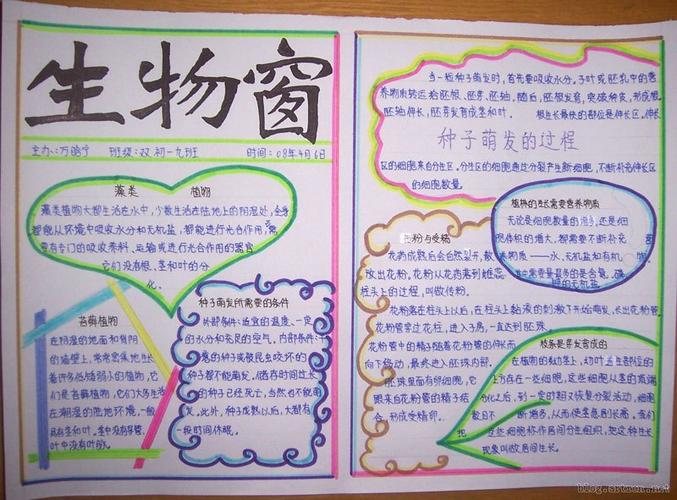 生物窗
主办:万晗宁 班级:双初一九班 时间:08年4月6日
藻类 植物
藻类植物大都生活在水中,少数生活在陆地上的阴湿处,全身
都能从环境中吸收水分和无机盐,都能进行光合作用,需
要有专门的吸收养料、运输或进行光合作用的器官
它们没有根、茎和叶的分
化。
苔藓植物
在阴湿的地面和背阴
的墙壁上,常常密集地生长
着许多低矮弱小的植物,它
们是苔藓植物,它们大多生活
在潮湿的陆地环境,一般
具有茎和叶。茎中没有导管,
叶中没有叶脉。
种子萌发所需要的条件
外部条件:适宜的温度、一定
的水分和充足的空气。内部条件:
的种子或被昆虫咬坏的
种子都不能萌发。储存时间过长
的种子已经死亡,当然也不能萌
发。此外,种子成熟以后,大都有
一段时间休眠。
当一粒种子萌发时,首先要吸收水分。子叶或胚乳中的营
养物质转运给胚根、胚芽、胚轴。随后,胚根发育,突破种皮,形成根。
胚轴伸长,胚芽发育成茎和叶。 根生长最快的部位是伸长区,伸长
种子萌发的过程
区的细胞来自分生区。分生区的细胞通过分裂产生新细胞,不断补充伸长区
的细胞数量。
植株的生长需要营养物质
无论是细胞数量的增多,还是细
胞体积的增大,都需要不断补充
物质——水、无机盐和有机物
其中需要量最多的是含氮、磷、
钾的无机盐
粉与受精
花药成熟后会自然裂开,散
放出花粉。花粉从花药落到雌蕊
柱头上的过程,叫做传粉。
花粉落在柱头上以后,在柱头上黏液的刺激下开始萌发,长出花粉管。
花粉管穿过花柱,进入子房,一直达到胚珠。
花粉管中的精子随着花粉管的伸长而
向下移动,最终进入胚珠内部。
胚珠里面有卵细胞,它
跟来自花粉管的精子结
合,形成受精卵。
枝条是芽发育成的
在植物的幼茎上,幼叶着生部位的
上方存在一些细胞,这些细胞从茎的顶端
分化之后,到一定时期又恢复分裂活动,细胞
数目不断增多,从而使茎急剧长高。我们
把 这些细胞称作居间分生组织,把这种生长
现象叫做居间生长。
blog.srtacn.net